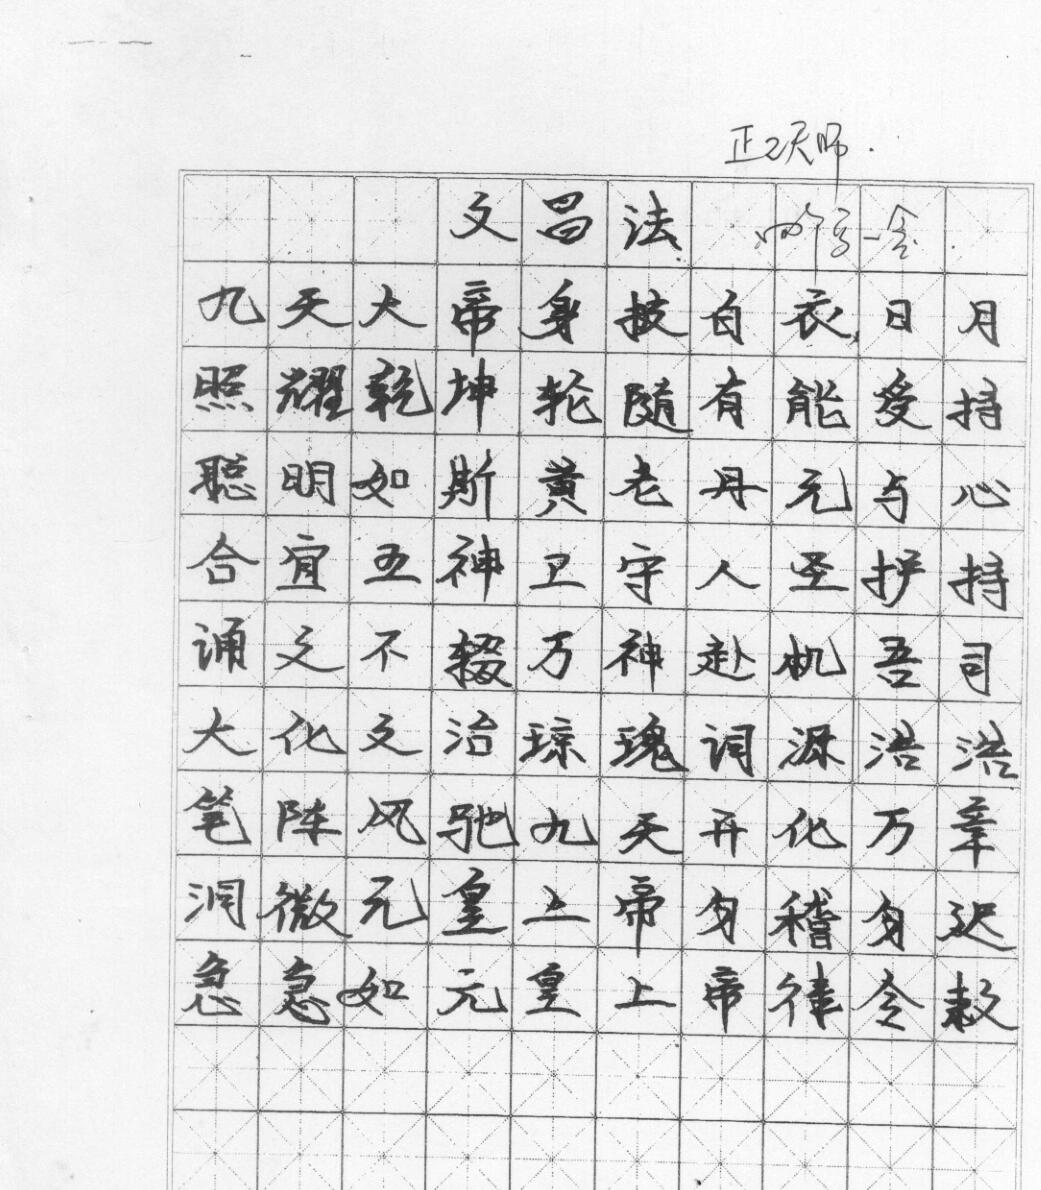 正乙天师
文昌法
九天大帝身披白衣日月
照耀乾坤轮随有能受持
聪明如斯黄老丹元与心
合宜五神卫守人圣护持
诵之不辍万神赴机吾司
大化文治琼瑰词源浩浩
笔阵风驰九天开化万章
洞微元皇上帝勿稽勿迟
急急如元皇上帝律令敕